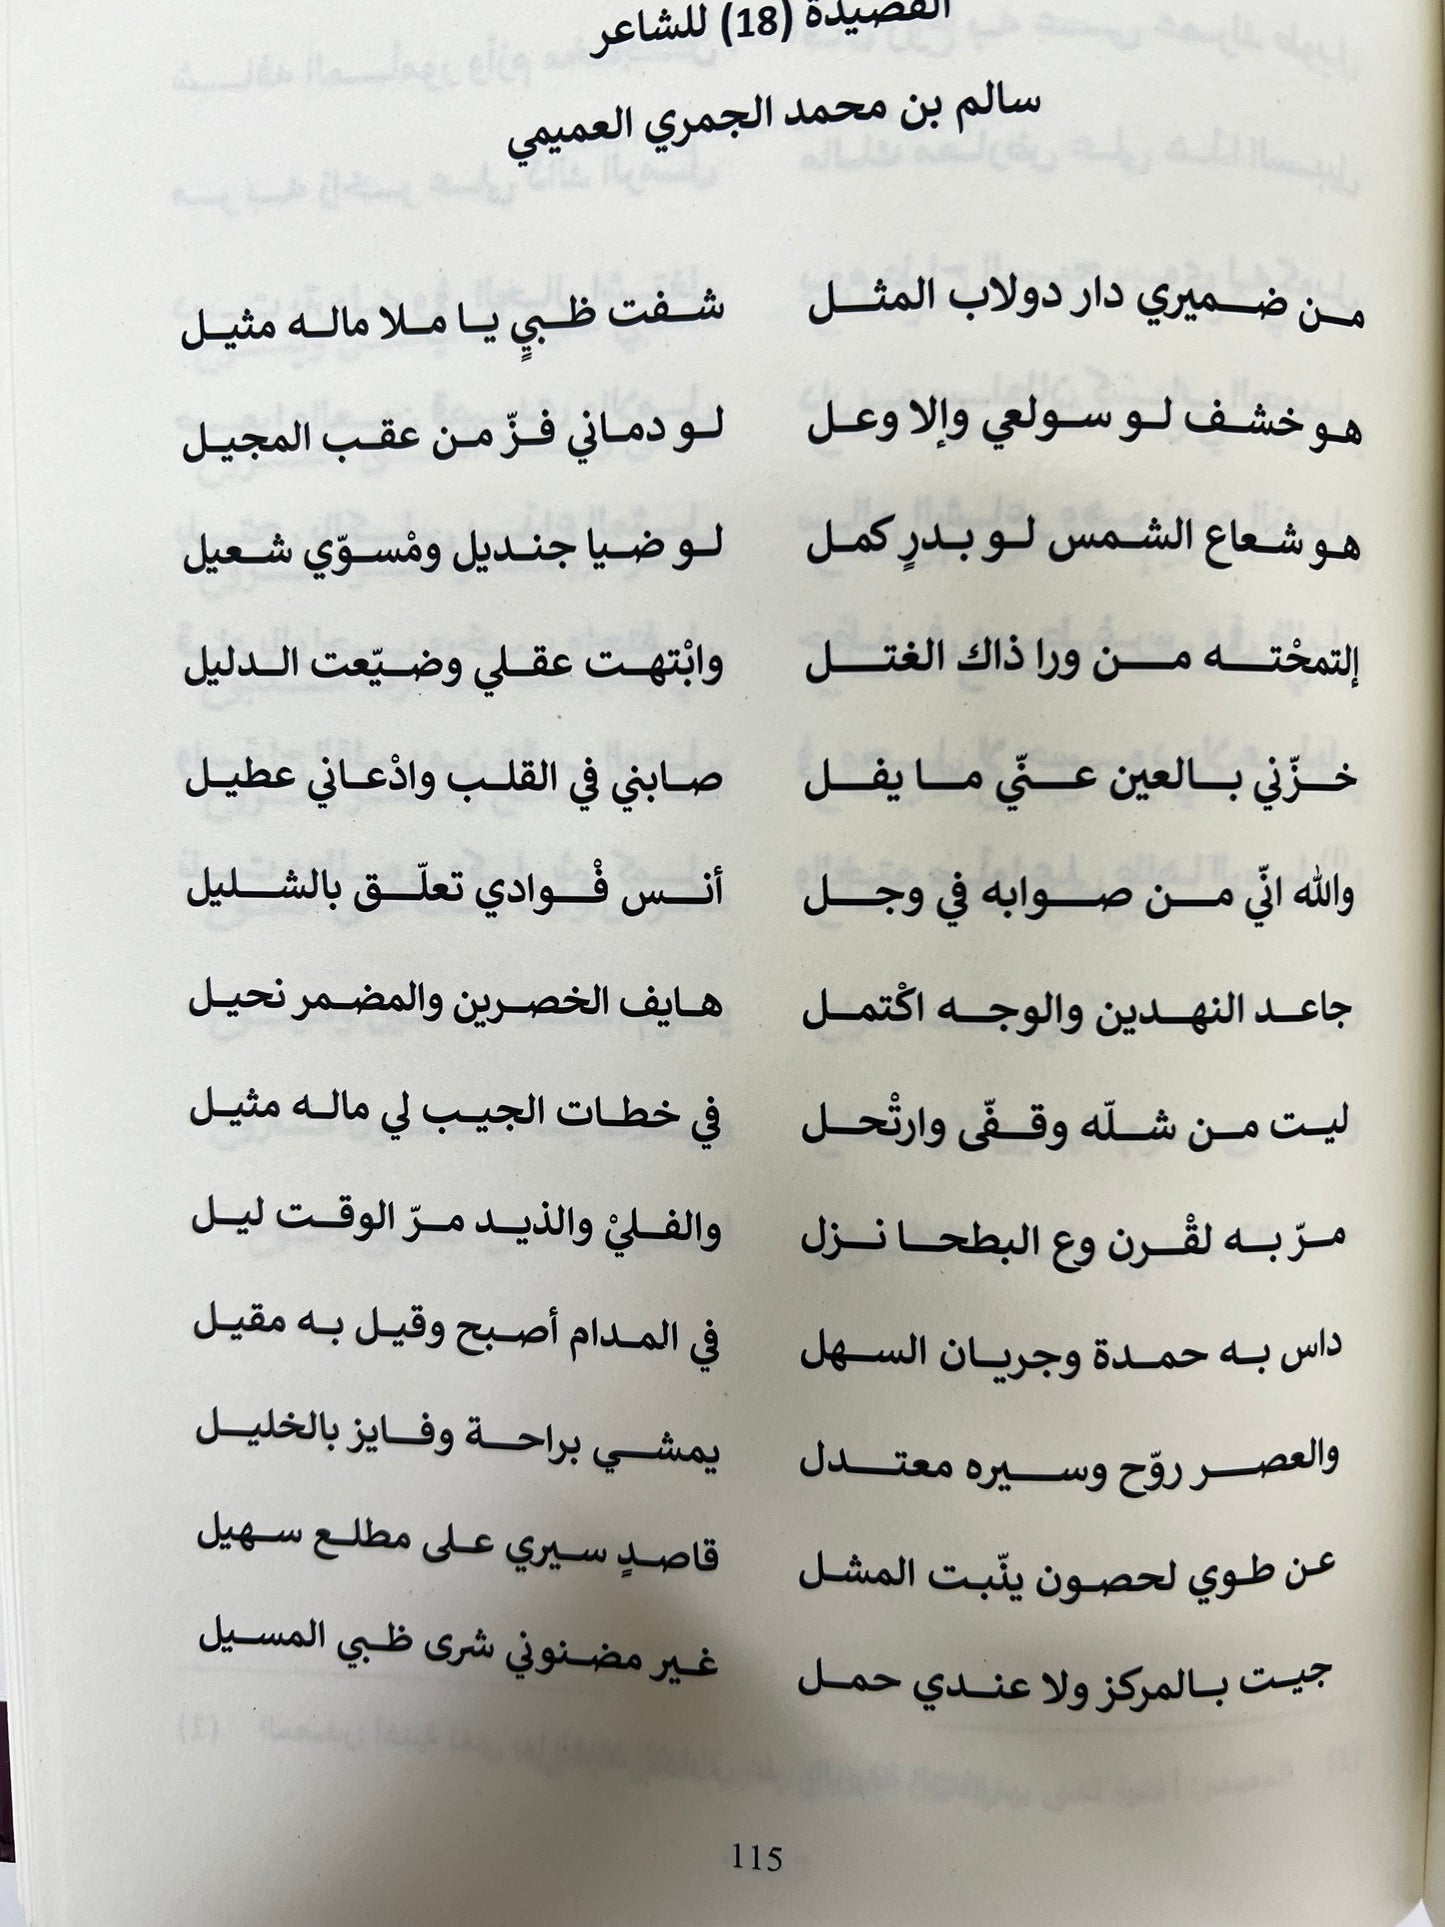 القصيدة (18) للشاعر
سالم بن محمد الجمري العميمي
من ضميري دار دولاب المثل شفت ظبيٍ يا ملا ماله مثيل
هو خشف لو سولعي وإلا وعل لو دماني فزّ من عقب المجيل
هو شعاع الشمس لو بدرٍ كمل لو ضيا جنديل ومْسوّي شعيل
إلتمحْته من ورا ذاك الغتل وابْتهت عقلي وضيّعت الدليل
خزّني بالعين عنّي ما يفل صابني في القلب وادْعاني عطيل
والله انّي من صوابه في وجل أنس فْوادي تعلّق بالشليل
جاعد النهدين والوجه اكْتمل هايف الخصرين والمضمر نحيل
ليت من شلّه وقفّى وارتْحل في خطات الجيب لي ماله مثيل
مرّ به لقْرن وع البطحا نزل والفليْ والذيد مرّ الوقت ليل
داس به حمدة وجريان السهل في المدام أصبح وقيل به مقيل
والعصر روّح وسيره معتدل يمشي براحة وفايز بالخليل
عن طوي لحصون ينّبت المشل قاصدٍ سيري على مطلع سهيل
جيت بالمركز ولا عندي حمل غير مضنوني شرى ظبي المسيل
115